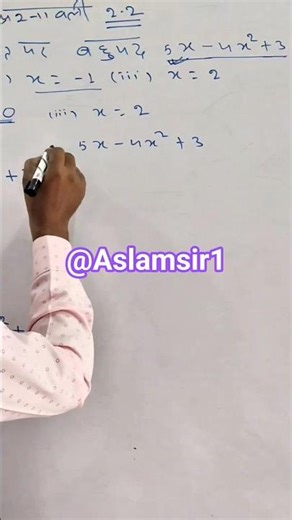 2.2
पर बहुपद 5x - 4x² + 3
) x = -1 (iii) x = 2
0 (iii) x = 2
5x - 4x² + 3
+
@Aslamsir1